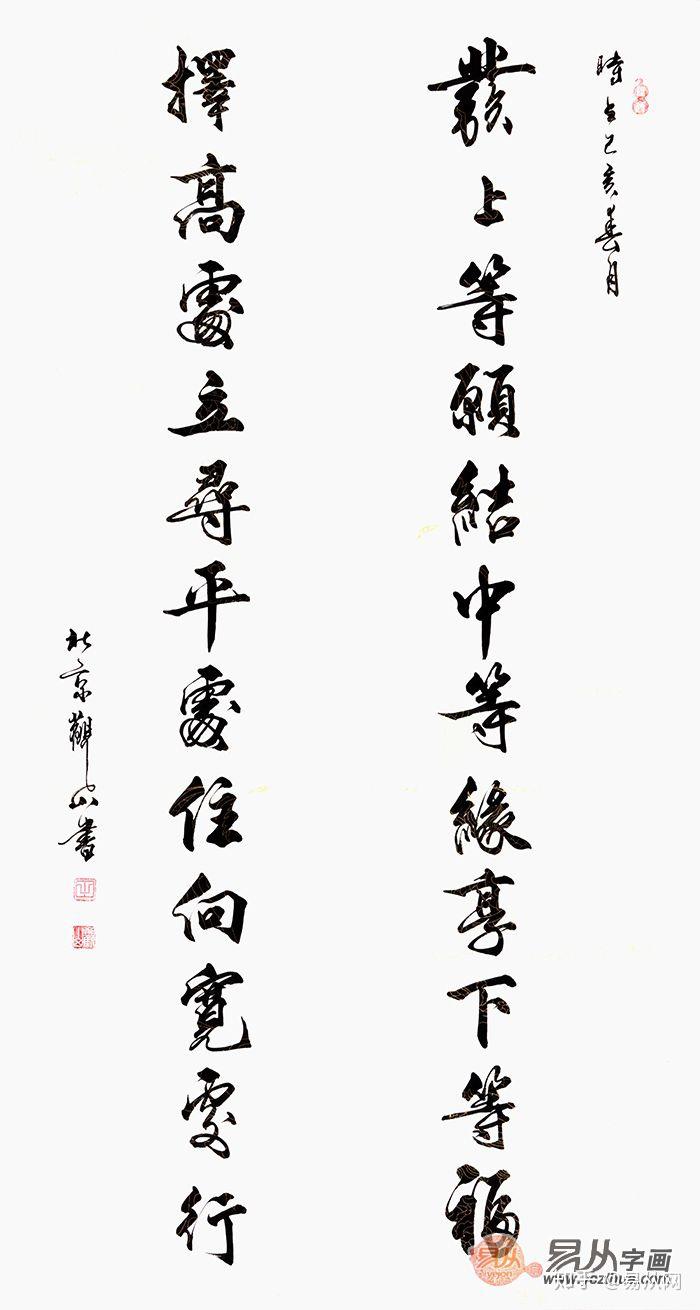 時在己亥春月
發上等願結中等緣享下等福
擇高處立尋平處住向寬處行
北京觀山書
易从字画
yocono
www.yczihua.com
知乎 @易从网